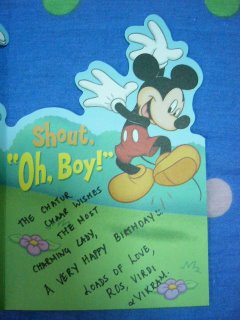 Shout,
"Oh, Boy!"
THE CHATUR
CHAAR WISHES
THE MOST
CHARMING LADY,
A VERY HAPPY BIRTHDAY!
LOADS OF LOVE,
ROS, VIRDI
& VIKRAM.